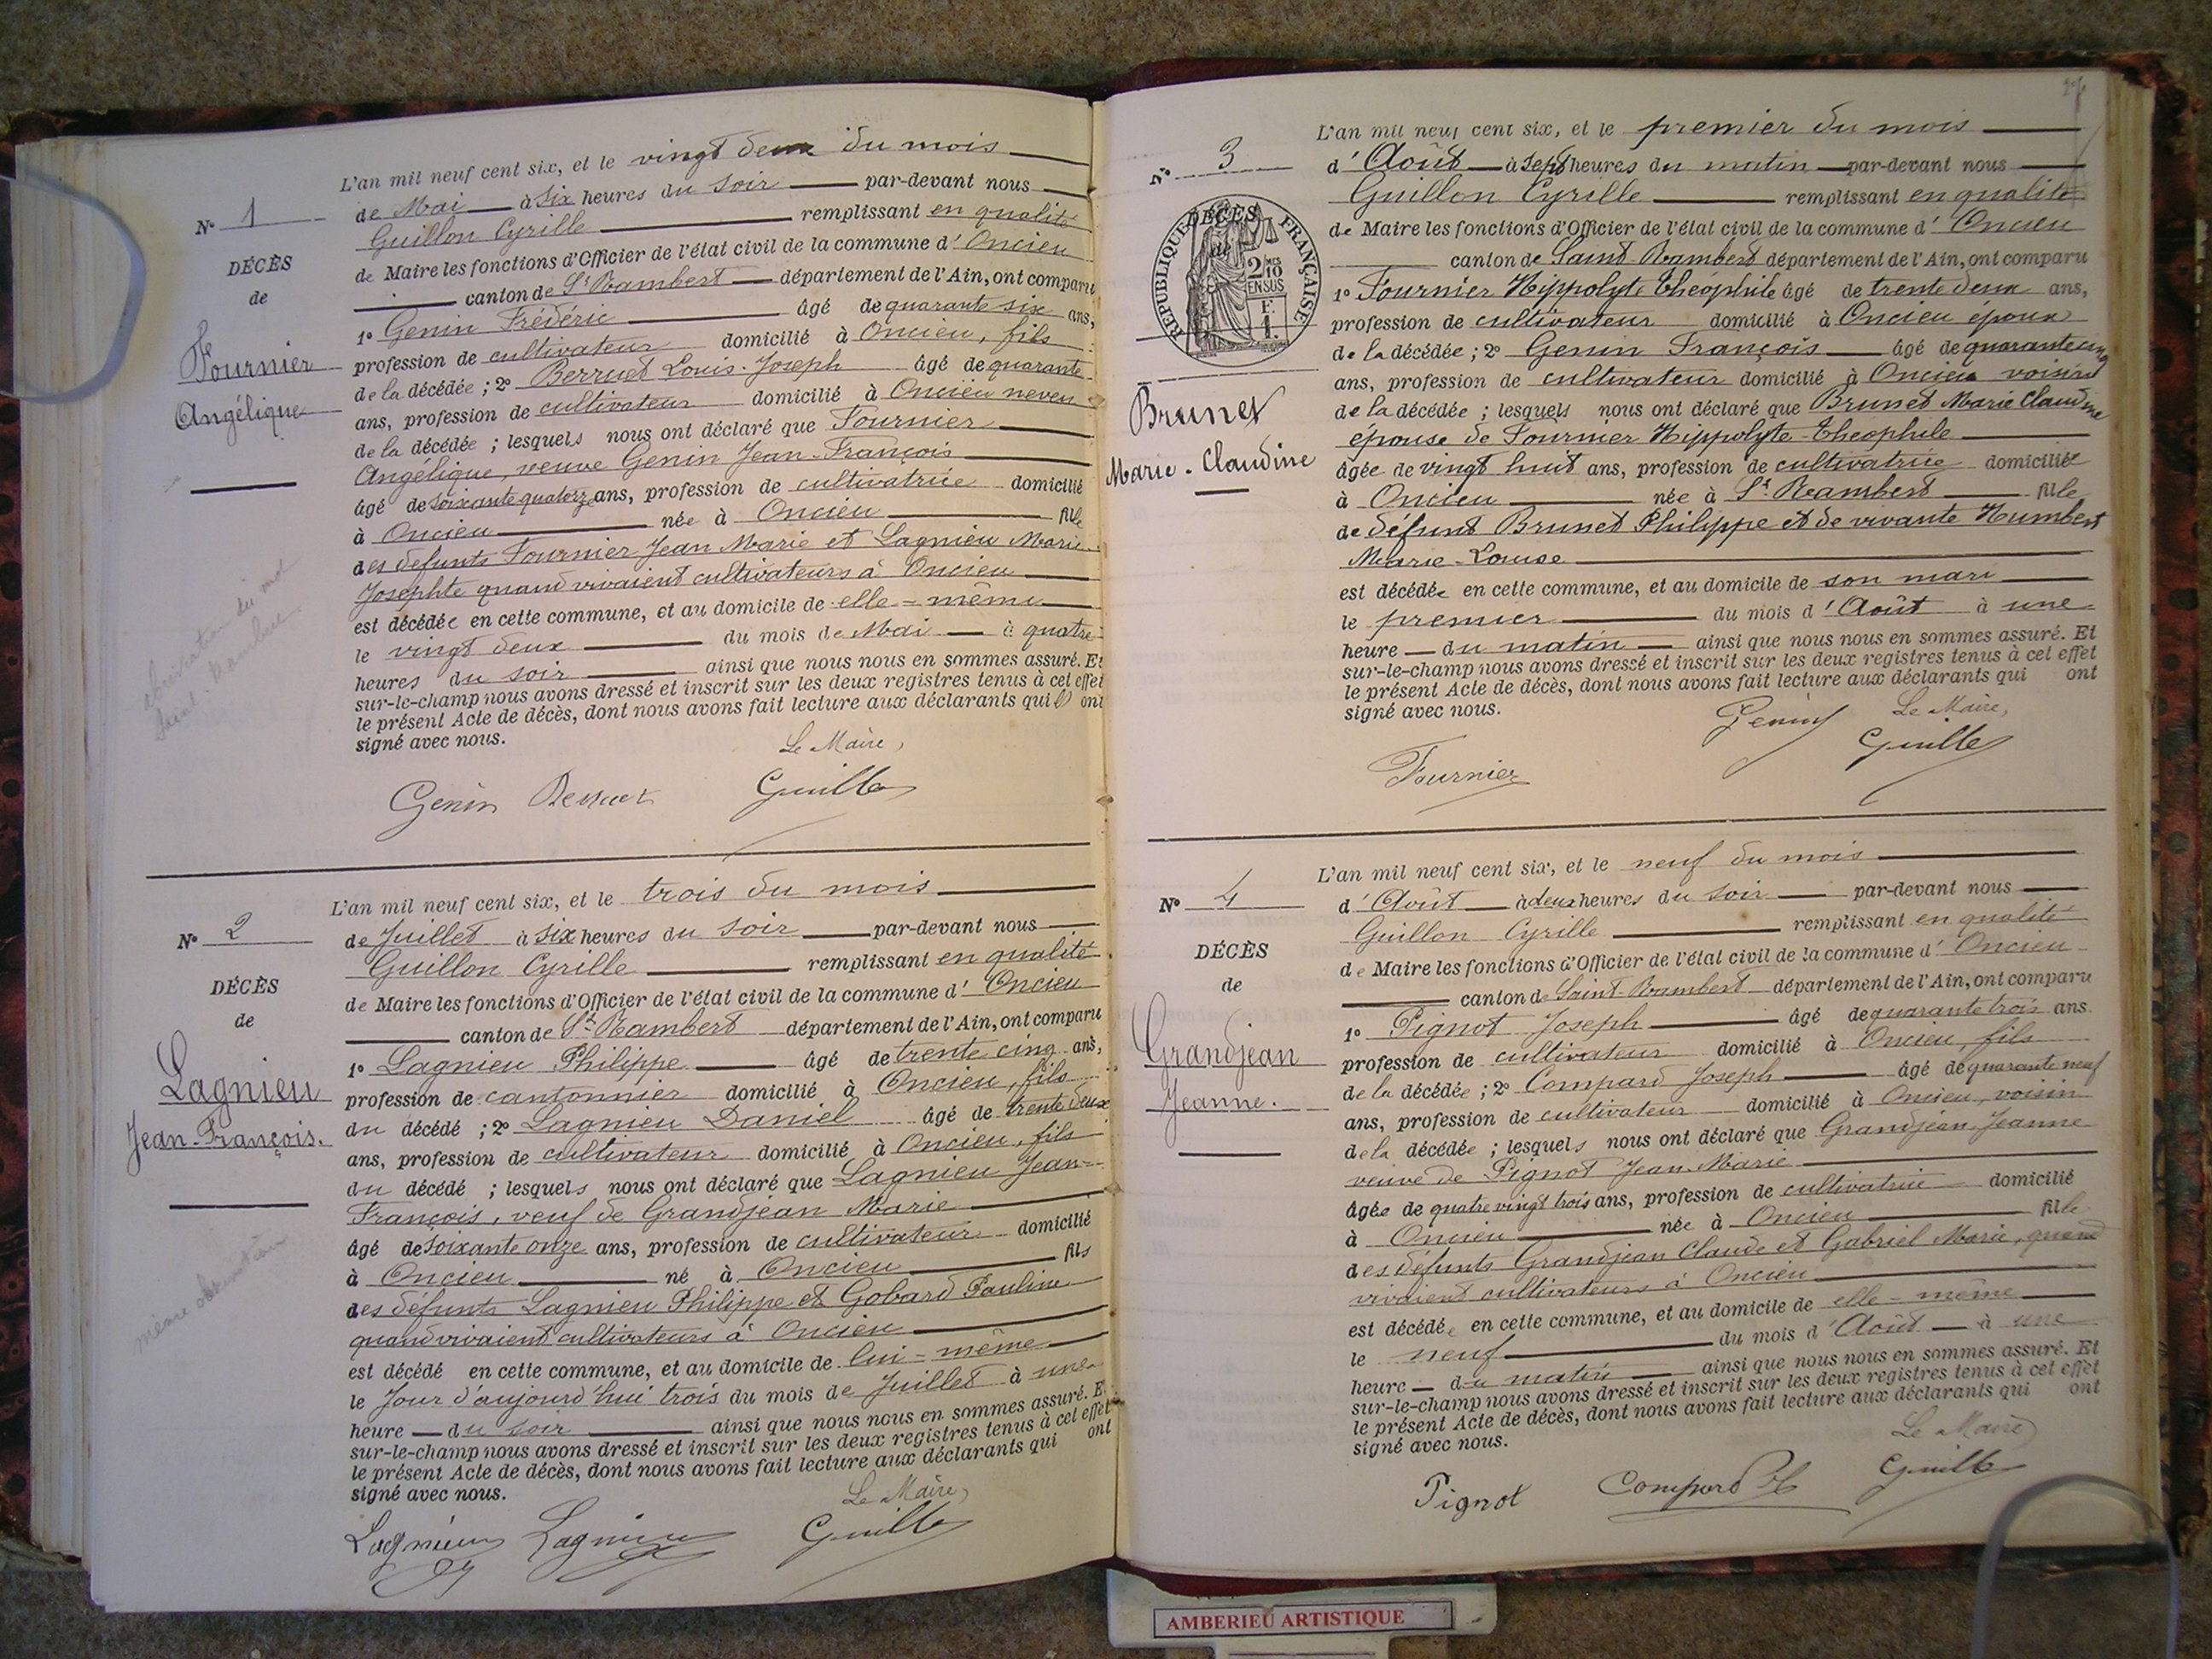 L'an mil neuf cent six, et le vingt deux du mois
de Mai à Six heures du soir par-devant nous
Guillon Cyrille remplissant en qualité
de Maire les fonctions d'Officier de l'état civil de la commune d'Oncieu
canton de St Rambert département de l'Ain, ont comparu
1º Genin Frédéric âgé de quarante six ans,
profession de cultivateur domicilié à Oncieu, fils
de la décédée ; 2º Berruet Louis-Joseph âgé de quarante
ans, profession de cultivateur domicilié à Oncieu neveu
de la décédée ; lesquels nous ont déclaré que Fournier
Angélique, veuve Genin Jean-François
âgé de soixante quatorze ans, profession de cultivatrice domicilié
à Oncieu née à Oncieu fille
des défunts Fournier Jean Marie et Lagnieu Marie
Josephte quand vivaient cultivateurs à Oncieu
est décédée en cette commune, et au domicile de elle-même
le vingt deux du mois de Mai à quatre
heures du soir ainsi que nous nous en sommes assuré. Et
sur-le-champ nous avons dressé et inscrit sur les deux registres tenus à cet effet
le présent Acte de décès, dont nous avons fait lecture aux déclarants qui ont
signé avec nous.
Le Maire,
Genin Berruet Guillon
Nº 1
DÉCÈS
de
Fournier
Angélique
L'an mil neuf cent six, et le trois du mois
de Juillet à six heures du soir par-devant nous
Guillon Cyrille remplissant en qualité
de Maire les fonctions d'Officier de l'état civil de la commune d'Oncieu
canton de St Rambert département de l'Ain, ont comparu
1º Lagnieu Philippe âgé de trente cinq ans,
profession de cantonnier domicilié à Oncieu, fils
du décédé ; 2º Lagnieu Daniel âgé de trente deux
ans, profession de cultivateur domicilié à Oncieu, fils
du décédé ; lesquels nous ont déclaré que Lagnieu Jean-
François, veuf de Grandjean Marie
âgé de soixante onze ans, profession de cultivateur domicilié
à Oncieu né à Oncieu fils
des défunts Lagnieu Philippe et Gobard Pauline
quand vivaient cultivateurs à Oncieu
est décédé en cette commune, et au domicile de lui-même
le Jour d'aujourd'hui trois du mois de Juillet à une
heure du soir ainsi que nous nous en sommes assuré. Et
sur-le-champ nous avons dressé et inscrit sur les deux registres tenus à cet effet
le présent Acte de décès, dont nous avons fait lecture aux déclarants qui ont
signé avec nous.
Le Maire,
Lagnieu Lagnieu Guillon
Nº 2
DÉCÈS
de
Lagnieu
Jean-François.
même observation
27
L'an mil neuf cent six, et le premier du mois
d'Août à sept heures du matin par-devant nous
Guillon Cyrille remplissant en qualité
de Maire les fonctions d'Officier de l'état civil de la commune d'Oncieu
canton de Saint-Rambert département de l'Ain, ont comparu
1º Fournier Hippolyte Théophile âgé de trente deux ans,
profession de cultivateur domicilié à Oncieu époux
de la décédée ; 2º Genin François âgé de quarante cinq
ans, profession de cultivateur domicilié à Oncieu voisin
de la décédée ; lesquels nous ont déclaré que Brunet Marie Claudine
épouse de Fournier Hippolyte-Théophile
âgée de vingt huit ans, profession de cultivatrice domiciliée
à Oncieu née à St Rambert fille
de défunt Brunet Philippe et de vivante Humbert
Marie-Louise
est décédée en cette commune, et au domicile de son mari
le premier du mois d'Août à une
heure du matin ainsi que nous nous en sommes assuré. Et
sur-le-champ nous avons dressé et inscrit sur les deux registres tenus à cet effet
le présent Acte de décès, dont nous avons fait lecture aux déclarants qui ont
signé avec nous.
Genin Le Maire,
Fournier Guillon
Nº 3
DÉCÈS
de
RÉPUBLIQUE FRANÇAISE
2 10
EN SUS
Brunet
Marie-Claudine
L'an mil neuf cent six, et le neuf du mois
d'Août à deux heures du soir par-devant nous
Guillon Cyrille remplissant en qualité
de Maire les fonctions d'Officier de l'état civil de la commune d'Oncieu
canton de Saint-Rambert département de l'Ain, ont comparu
1º Pignot Joseph âgé de quarante trois ans.
profession de cultivateur domicilié à Oncieu, fils
de la décédée ; 2º Compard Joseph âgé de quarante neuf
ans, profession de cultivateur domicilié à Oncieu, voisin
de la décédée ; lesquels nous ont déclaré que Grandjean Jeanne
veuve de Pignot Jean-Marie
âgée de quatre vingt trois ans, profession de cultivatrice domicilié
à Oncieu née à Oncieu fille
des défunts Grandjean Claude et Gabriel Marie, quand
vivaient cultivateurs à Oncieu
est décédée en cette commune, et au domicile de elle-même
le neuf du mois d'Août à une
heure du matin ainsi que nous nous en sommes assuré. Et
sur-le-champ nous avons dressé et inscrit sur les deux registres tenus à cet effet
le présent Acte de décès, dont nous avons fait lecture aux déclarants qui ont
signé avec nous.
Le Maire
Pignot Compard Guillon
Nº 4
DÉCÈS
de
Grandjean
Jeanne.
AMBERIEU ARTISTIQUE